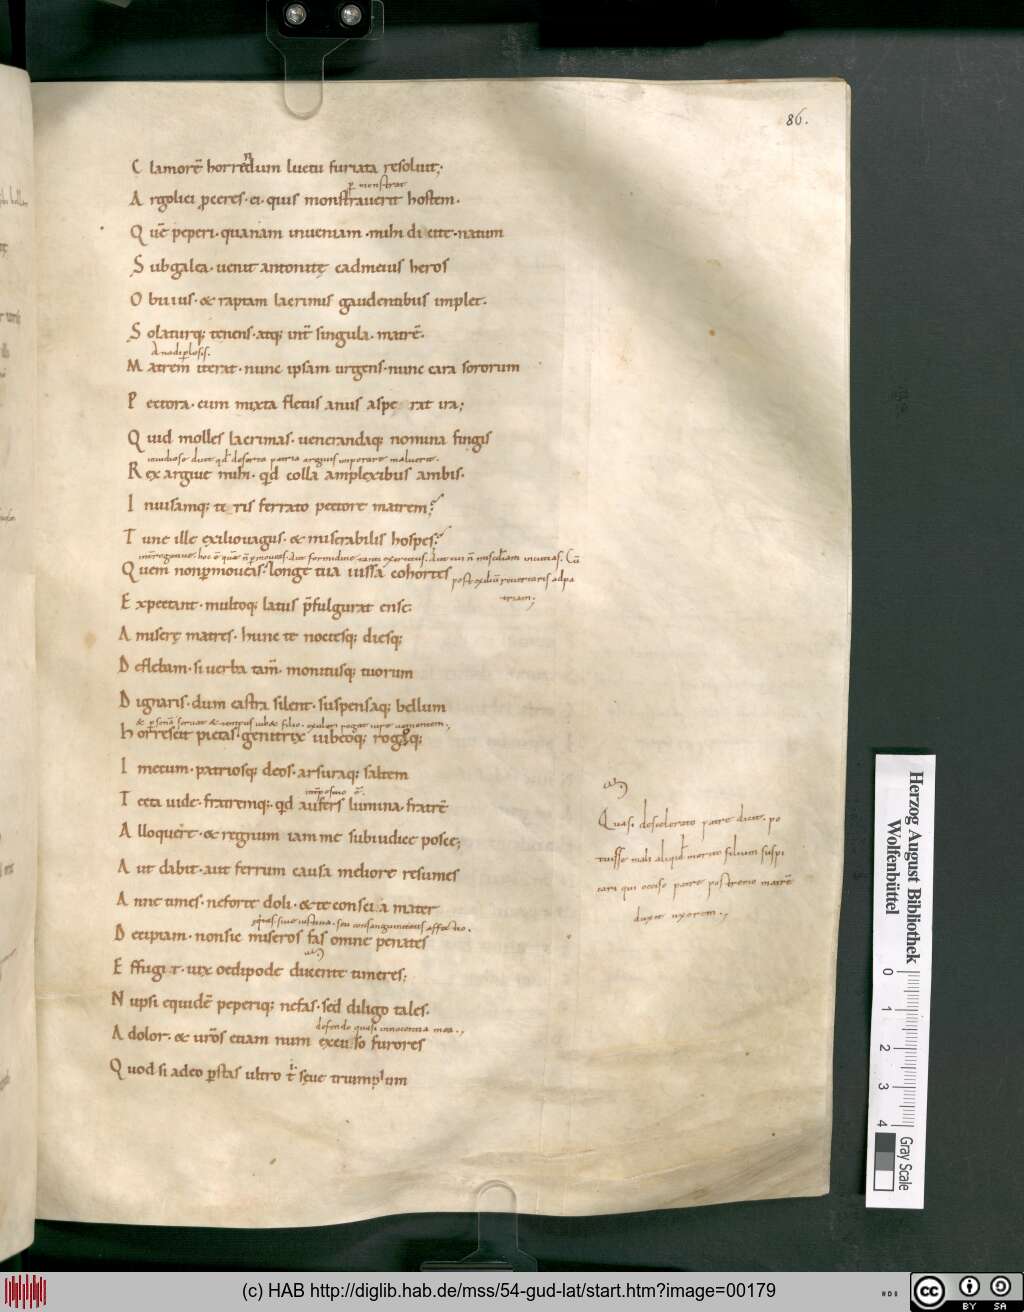 86.
C lamorē horrēdum luctu furiata resoluit;
ꝑ monstrate
A rgolici ꝓceres · ei · quis monstrauerit hostem ·
Q uē peperi · quanam inueniam · mihi dicite · natum
S ubgalea · uenit attonitę cadmeius heros
O buius · & raptam lacrimis gaudentibus implet ·
S olaturq; tenens · atq; int̄ singula · matrē ·
Anadiplosis ·
M atrem iterat · nunc ipsam urgens · nunc cara sororum
P ectora · cum mixta fletus anus aspe rat ira;
Q uid molles lacrimas · uenerandaq; nomina fingis
inuidiose
R ex argiue mihi · qd colla amplexibus ambis ·
I nuisamq; te ris ferrato pectore matrem?
T unc ille exiliouagus · & miserabilis hospes?
Quem nonꝑmoueas? longe tua iussa cohortes
post exiliū reuertaris ad pa
triam;
E xpectant · multoq; latus p̄fulgurat ense
A miserę matres · hunc te noctesq; diesq;
D eflebam · si uerba tam̄ · monitusq; tuorum
D ignaris · dum castra silent · suspensaq; bellum
h orrescit pietas · genitrix iubeoq; rogoq;
I mecum · patriosq; deos · arsuraq; saltem
T ecta uide · fratremq; · qd aufers lumina · fratrē
A lloquere · & regnum iam me subiudice posce;
A ut dabit · aut ferrum causa meliore resumes
A nne times · neforte doli · & te conscia mater
D ecipiam · nonsic miseros fas omne penates
E ffugit · uix oedipode ducente timeres;
N upsi equidē peperiq; nefas · sed diligo tales ·
defendo quasi innocentia mea ·,
A dolor · & urōs etiam num excuso furores
Quod si adeo ꝑstas ultro t̄ sęue triumphum
Quasi descelerato patre dicit · po
tuisse mali aliquid merito filium suspi
cari qui occiso patre postremo matrē
duxit uxorem ·,
Herzog August Bibliothek
Wolfenbüttel
0 1 2 3 4
Gray Scale
(c) HAB http://diglib.hab.de/mss/54-gud-lat/start.htm?image=00179
CC BY SA